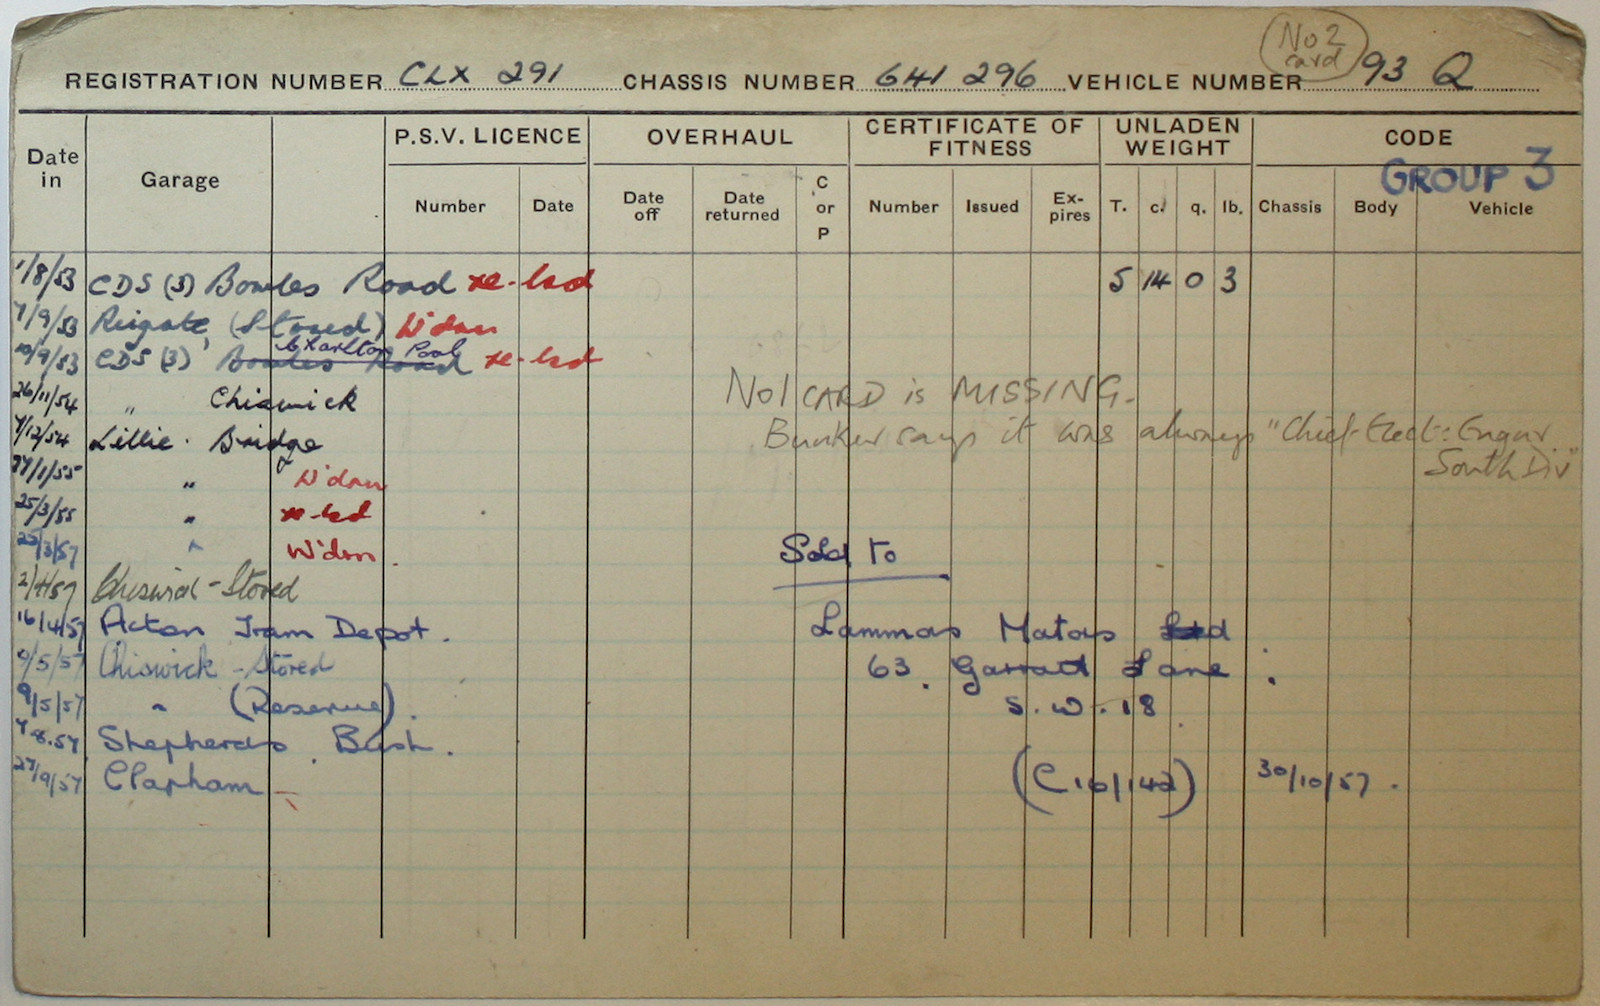 No 2
card
REGISTRATION NUMBER CLX 291 CHASSIS NUMBER 641 296 VEHICLE NUMBER 93 Q
Date in Garage P.S.V. LICENCE OVERHAUL CERTIFICATE OF FITNESS UNLADEN WEIGHT CODE
GROUP 3
Number Date Date off Date returned C or P Number Issued Ex-pires T. c. q. lb. Chassis Body Vehicle
1/8/53 CDS (3) Bowles Road re-lsd 5 14 0 3
7/9/53 Reigate (Stored) W'dn
10/9/53 CDS (3) Bowles Road Charlton Pool re-lsd
26/11/54 " Chiswick
No1 CARD is MISSING.
7/12/54 Lillie Bridge
Bunker says it was always "Chief Elect: Engnr
South Div"
27/1/55 " W'dn
25/3/55 " re-lsd
25/3/57 " W'dn
Sold to
2/4/57 Chiswick - Stored
16/4/57 Acton Tram Depot. Lammas Motors Ltd
9/5/57 Chiswick - Stored 63. Garratt Lane
9/5/57 " (Reserve). S.W.18
7.8.57 Shepherds Bush.
27/9/57 Clapham (C10/142) 30/10/57.